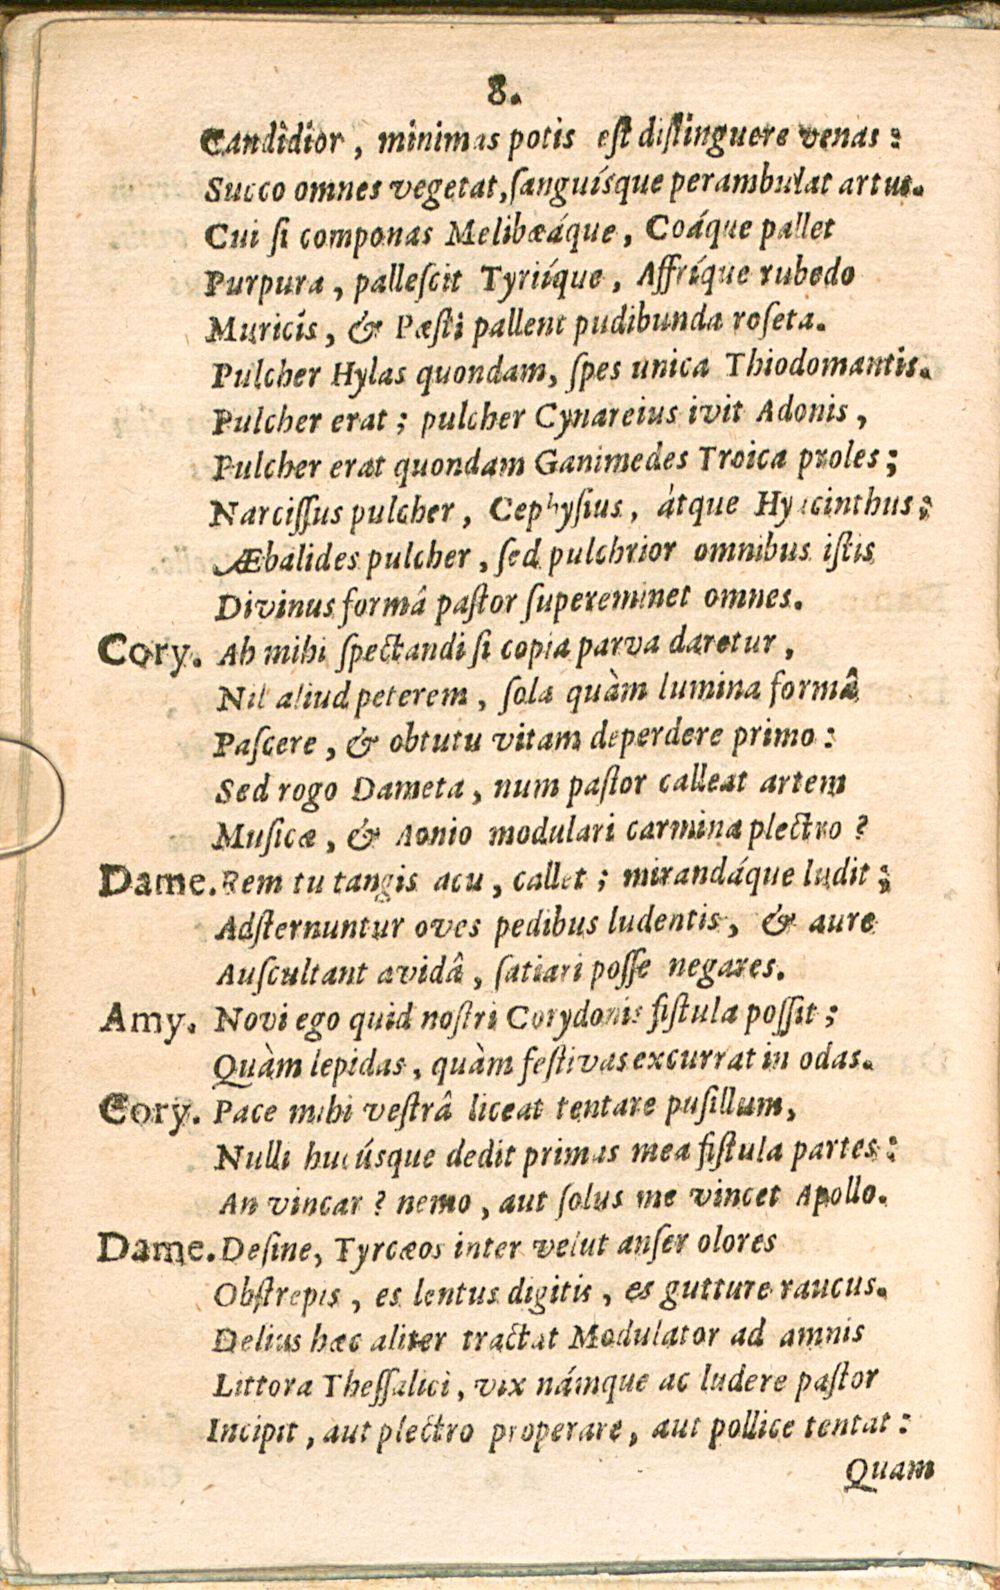 8.
Candidior, minimas potis eſt diſtinguere venas:
Succo omnes vegetat, ſanguíſque perambulat artus.
Cui ſi componas Melibæáque, Coáque pallet
Purpura, palleſcit Tyriíque, Affríque rubedo
Muricis, & Pæſti pallent pudibunda roſeta.
Pulcher Hylas quondam, ſpes unica Thiodomantis.
Pulcher erat; pulcher Cynareius ivit Adonis,
Pulcher erat quondam Ganimedes Troica proles;
Narciſſus pulcher, Cephyſius, átque Hyacinthus;
Æbalides pulcher, ſed pulchrior omnibus iſtis
Divinus formâ paſtor ſupereminet omnes.
Cory. Ah mihi ſpectandi ſi copia parva daretur,
Nil aliud peterem, ſola quàm lumina formâ
Paſcere, & obtutu vitam deperdere primo:
Sed rogo Dameta, num paſtor calleat artem
Muſicæ, & Aonio modulari carmina plectro?
Dame. Rem tu tangis acu, callet; mirandáque ludit;
Adſternuntur oves pedibus ludentis, & aure
Auſcultant avidâ, ſatiari poſſe negares.
Amy. Novi ego quid noſtri Corydonis fiſtula poſſit;
Quàm lepidas, quàm feſtivas excurrat in odas.
Cory. Pace mihi veſtrâ liceat tentare puſillum,
Nulli hucúsque dedit primas mea fiſtula partes:
An vincar? nemo, aut ſolus me vincet Apollo.
Dame. Deſine, Tyrcæos inter velut anſer olores
Obſtrepis, es lentus digitis, es gutture raucus.
Delius hæc aliter tractat Modulator ad amnis
Littora Theſſalici, vix námque ac ludere paſtor
Incipit, aut plectro properare, aut pollice tentat:
Quam